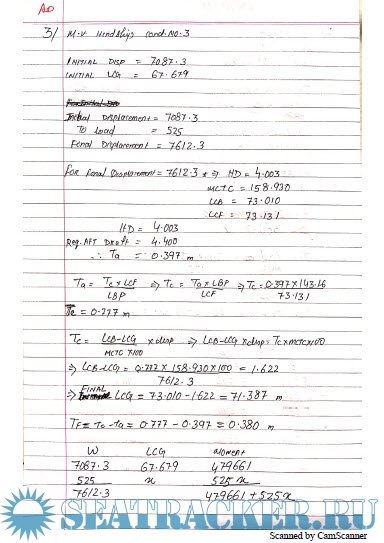 AD
3/ M.V Hindships Cond. NO. 3
INITIAL DISP = 7087.3
INITIAL LCG = 67.679
Initial Displacement = 7087.3
To Load = 525
Final Displacement = 7612.3
For final Displacement = 7612.3 ⇒ HD = 4.003
MCTC = 158.930
LCB = 73.010
LCF = 73.131
HD = 4.003
Req. AFT Draft = 4.400
∴ Ta = 0.397 m
Ta = Tc x LCF / LBP ⇒ Tc = Ta x LBP / LCF ⇒ Tc = 0.397 x 143.16 / 73.131
Tc = 0.777 m
Tc = LCB-LCG x disp / MCTC x100 ⇒ LCB-LCG x disp = Tc x MCTC x 100
⇒ LCB-LCG = 0.777 x 158.930 x 100 / 7612.3 = 1.622
⇒ FINAL LCG = 73.010 - 1.622 = 71.387 m
TF = Tc - Ta = 0.777 - 0.397 = 0.380 m
W LCG Moment
7087.3 67.679 479661
525 x 525x
7612.3 479661 + 525x
SEATRACKER.RU
Scanned by CamScanner